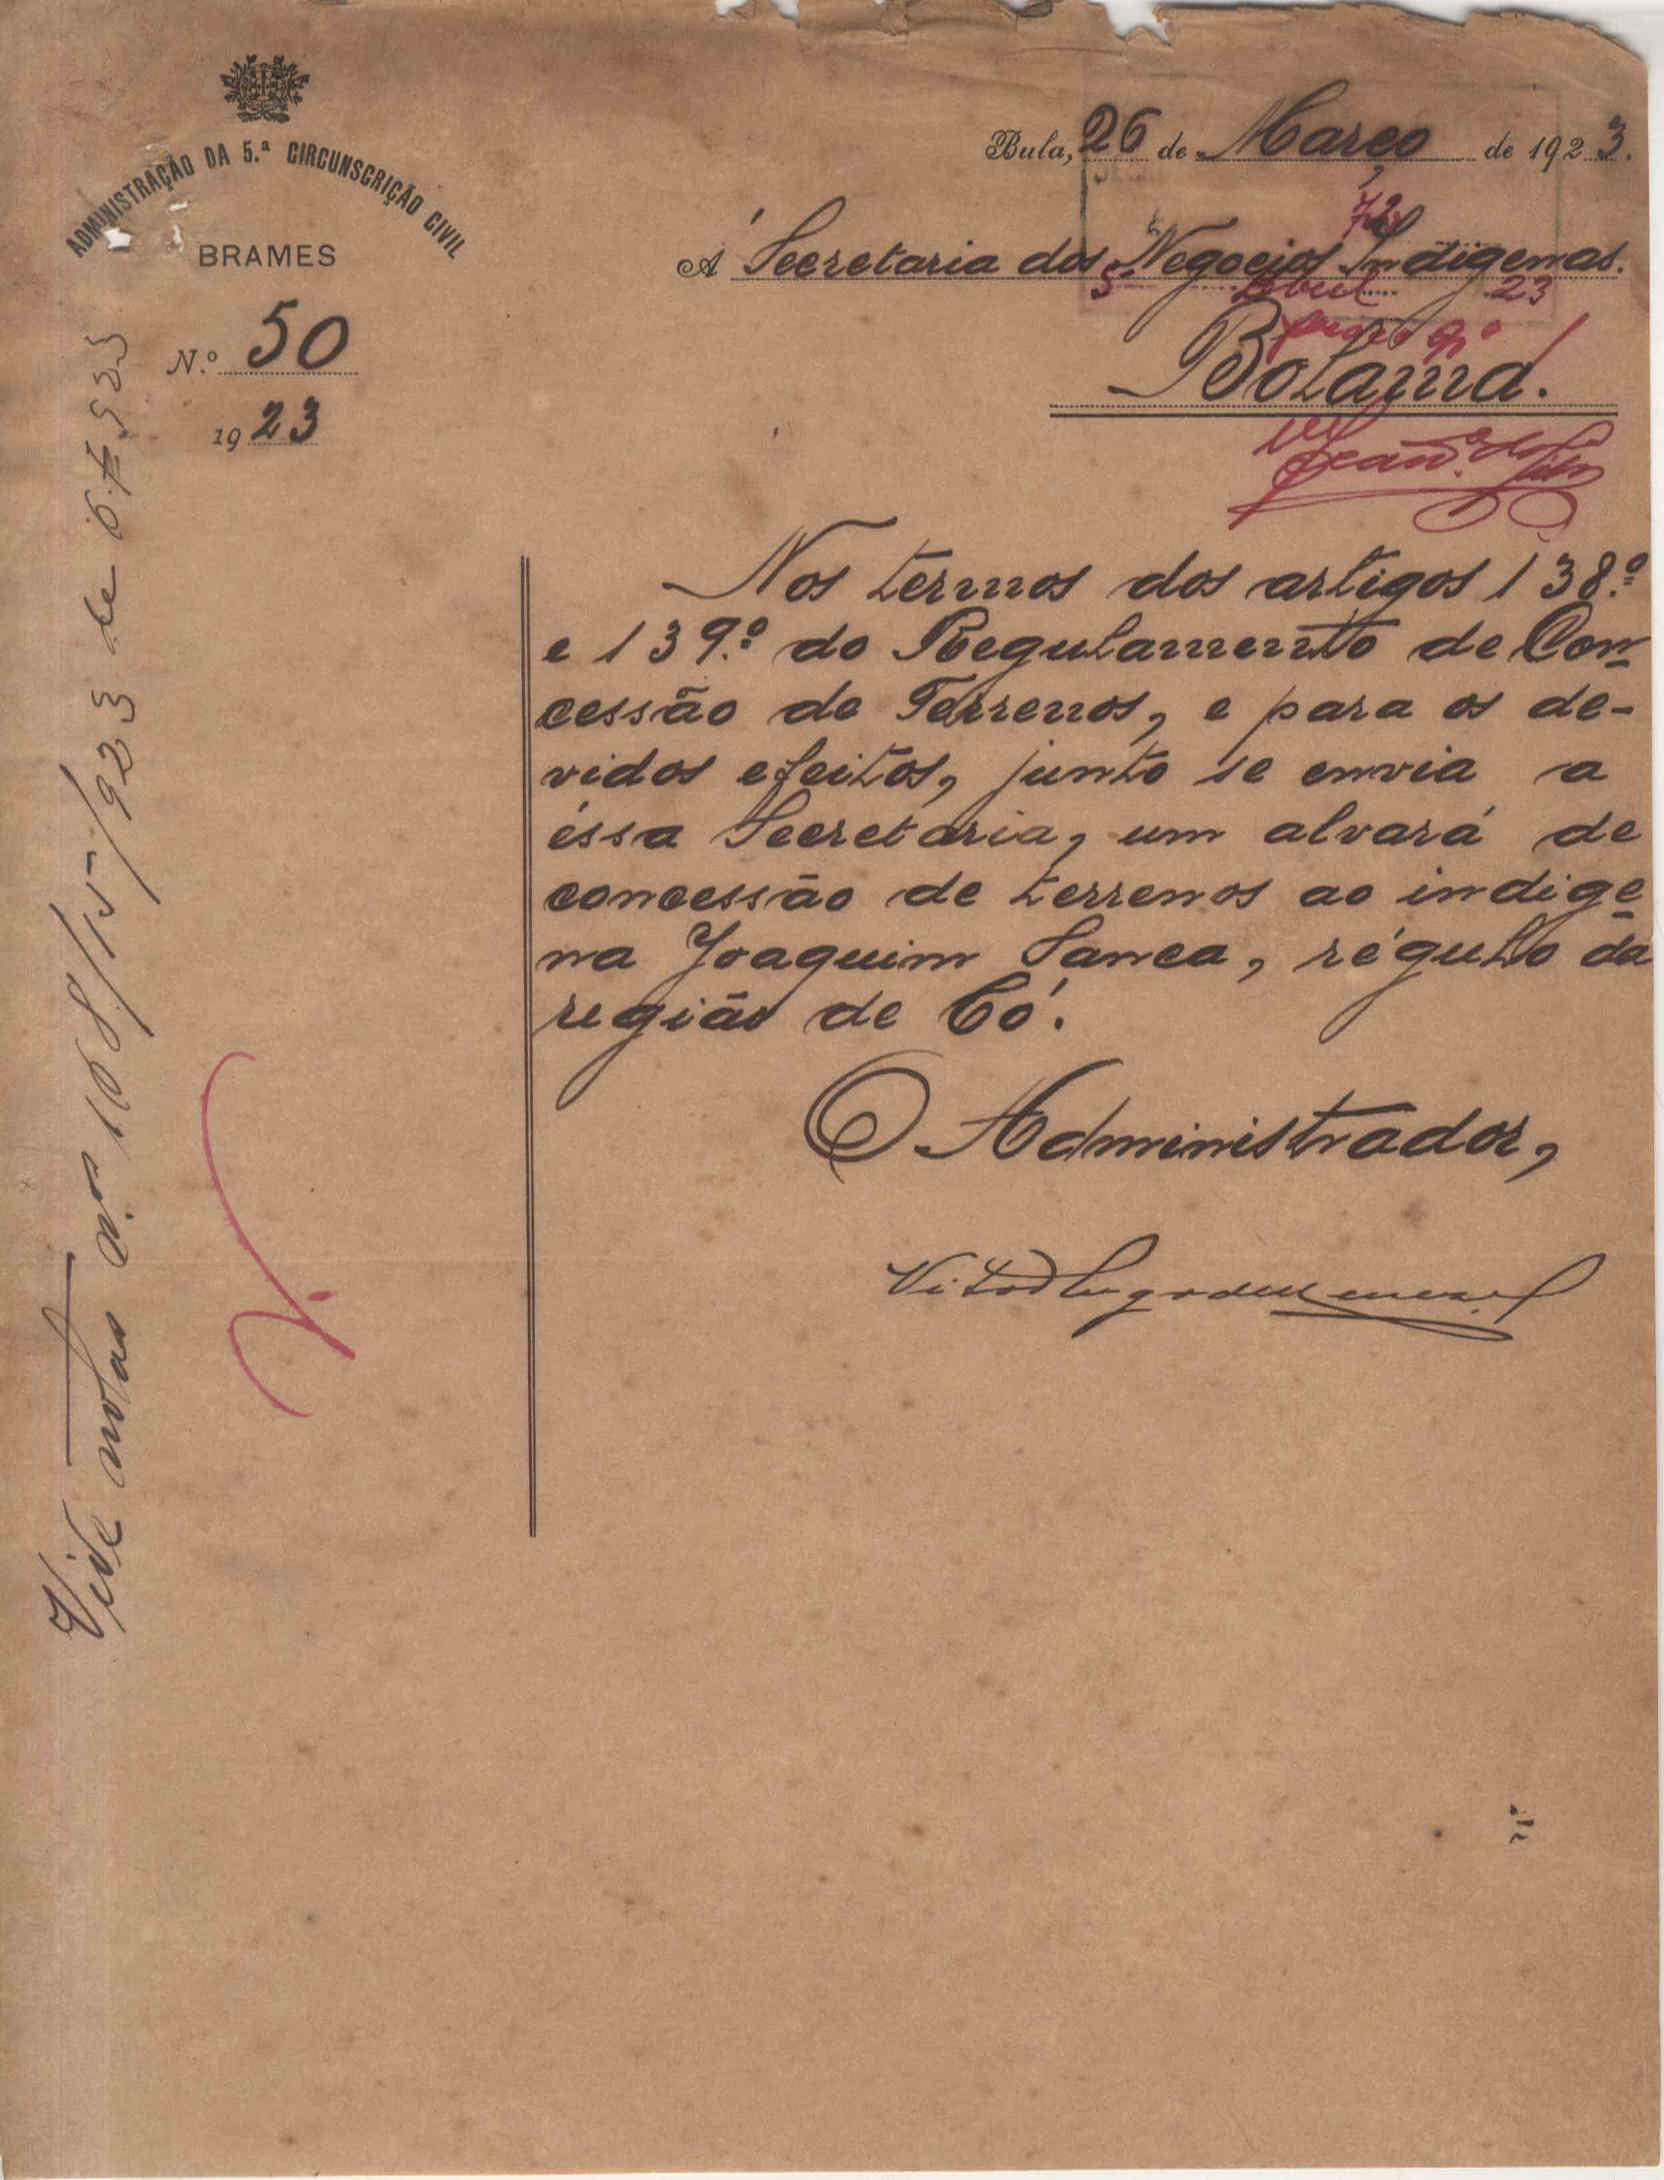 ADMINISTRAÇÃO DA 5.ª CIRCUNSCRIÇÃO CIVIL
BRAMES
N.º 50
1923
Bula, 26 de Março de 1923.
Á Secretaria dos Negocios Indigenas.
5 Abril 23
Bolama.
Nos termos dos artigos 138.º
e 139.º do Regulamento de Con-
cessão de Terrenos, e para os de-
vidos efeitos, junto se envia a
éssa Secretaria, um alvará de
concessão de terrenos ao indige-
na Joaquim Sanca, régulo da
região de Có.
O Administrador,
Vide notas n.os 168/15-/923 de